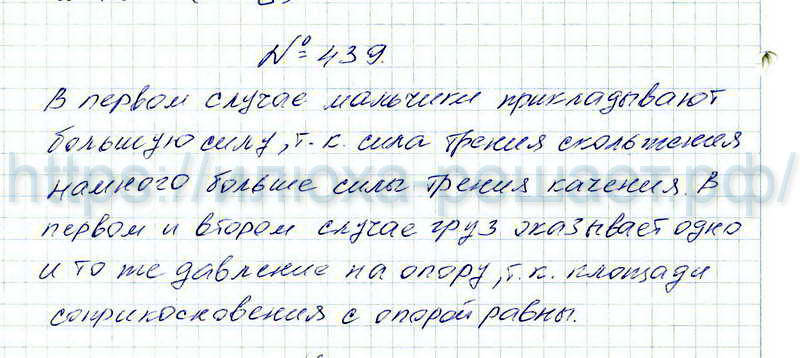 № 439.
В первом случае мальчики прикладывают
большую силу, т. к. сила трения скольжения
намного больше силы трения качения. В
первом и втором случае груз оказывает одно
и то же давление на опору, т. к. площади
соприкосновения с опорой равны.